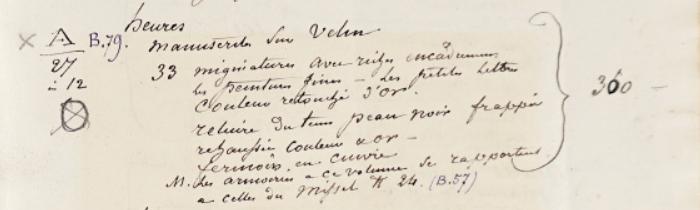 heures
× A B.79. manuscrits sur Velin
27 33 migniatures avec riches encadremens
in 12 les peintures fines – les petites lettres
Couleur rehaussé d'or.
reliure du tems peau noir frappée
rehaussée couleur & or –
fermoirs en cuivre
360 –
M. les armoiries a ce volume se rapportent
a celles du Missel № 24. (B.57)